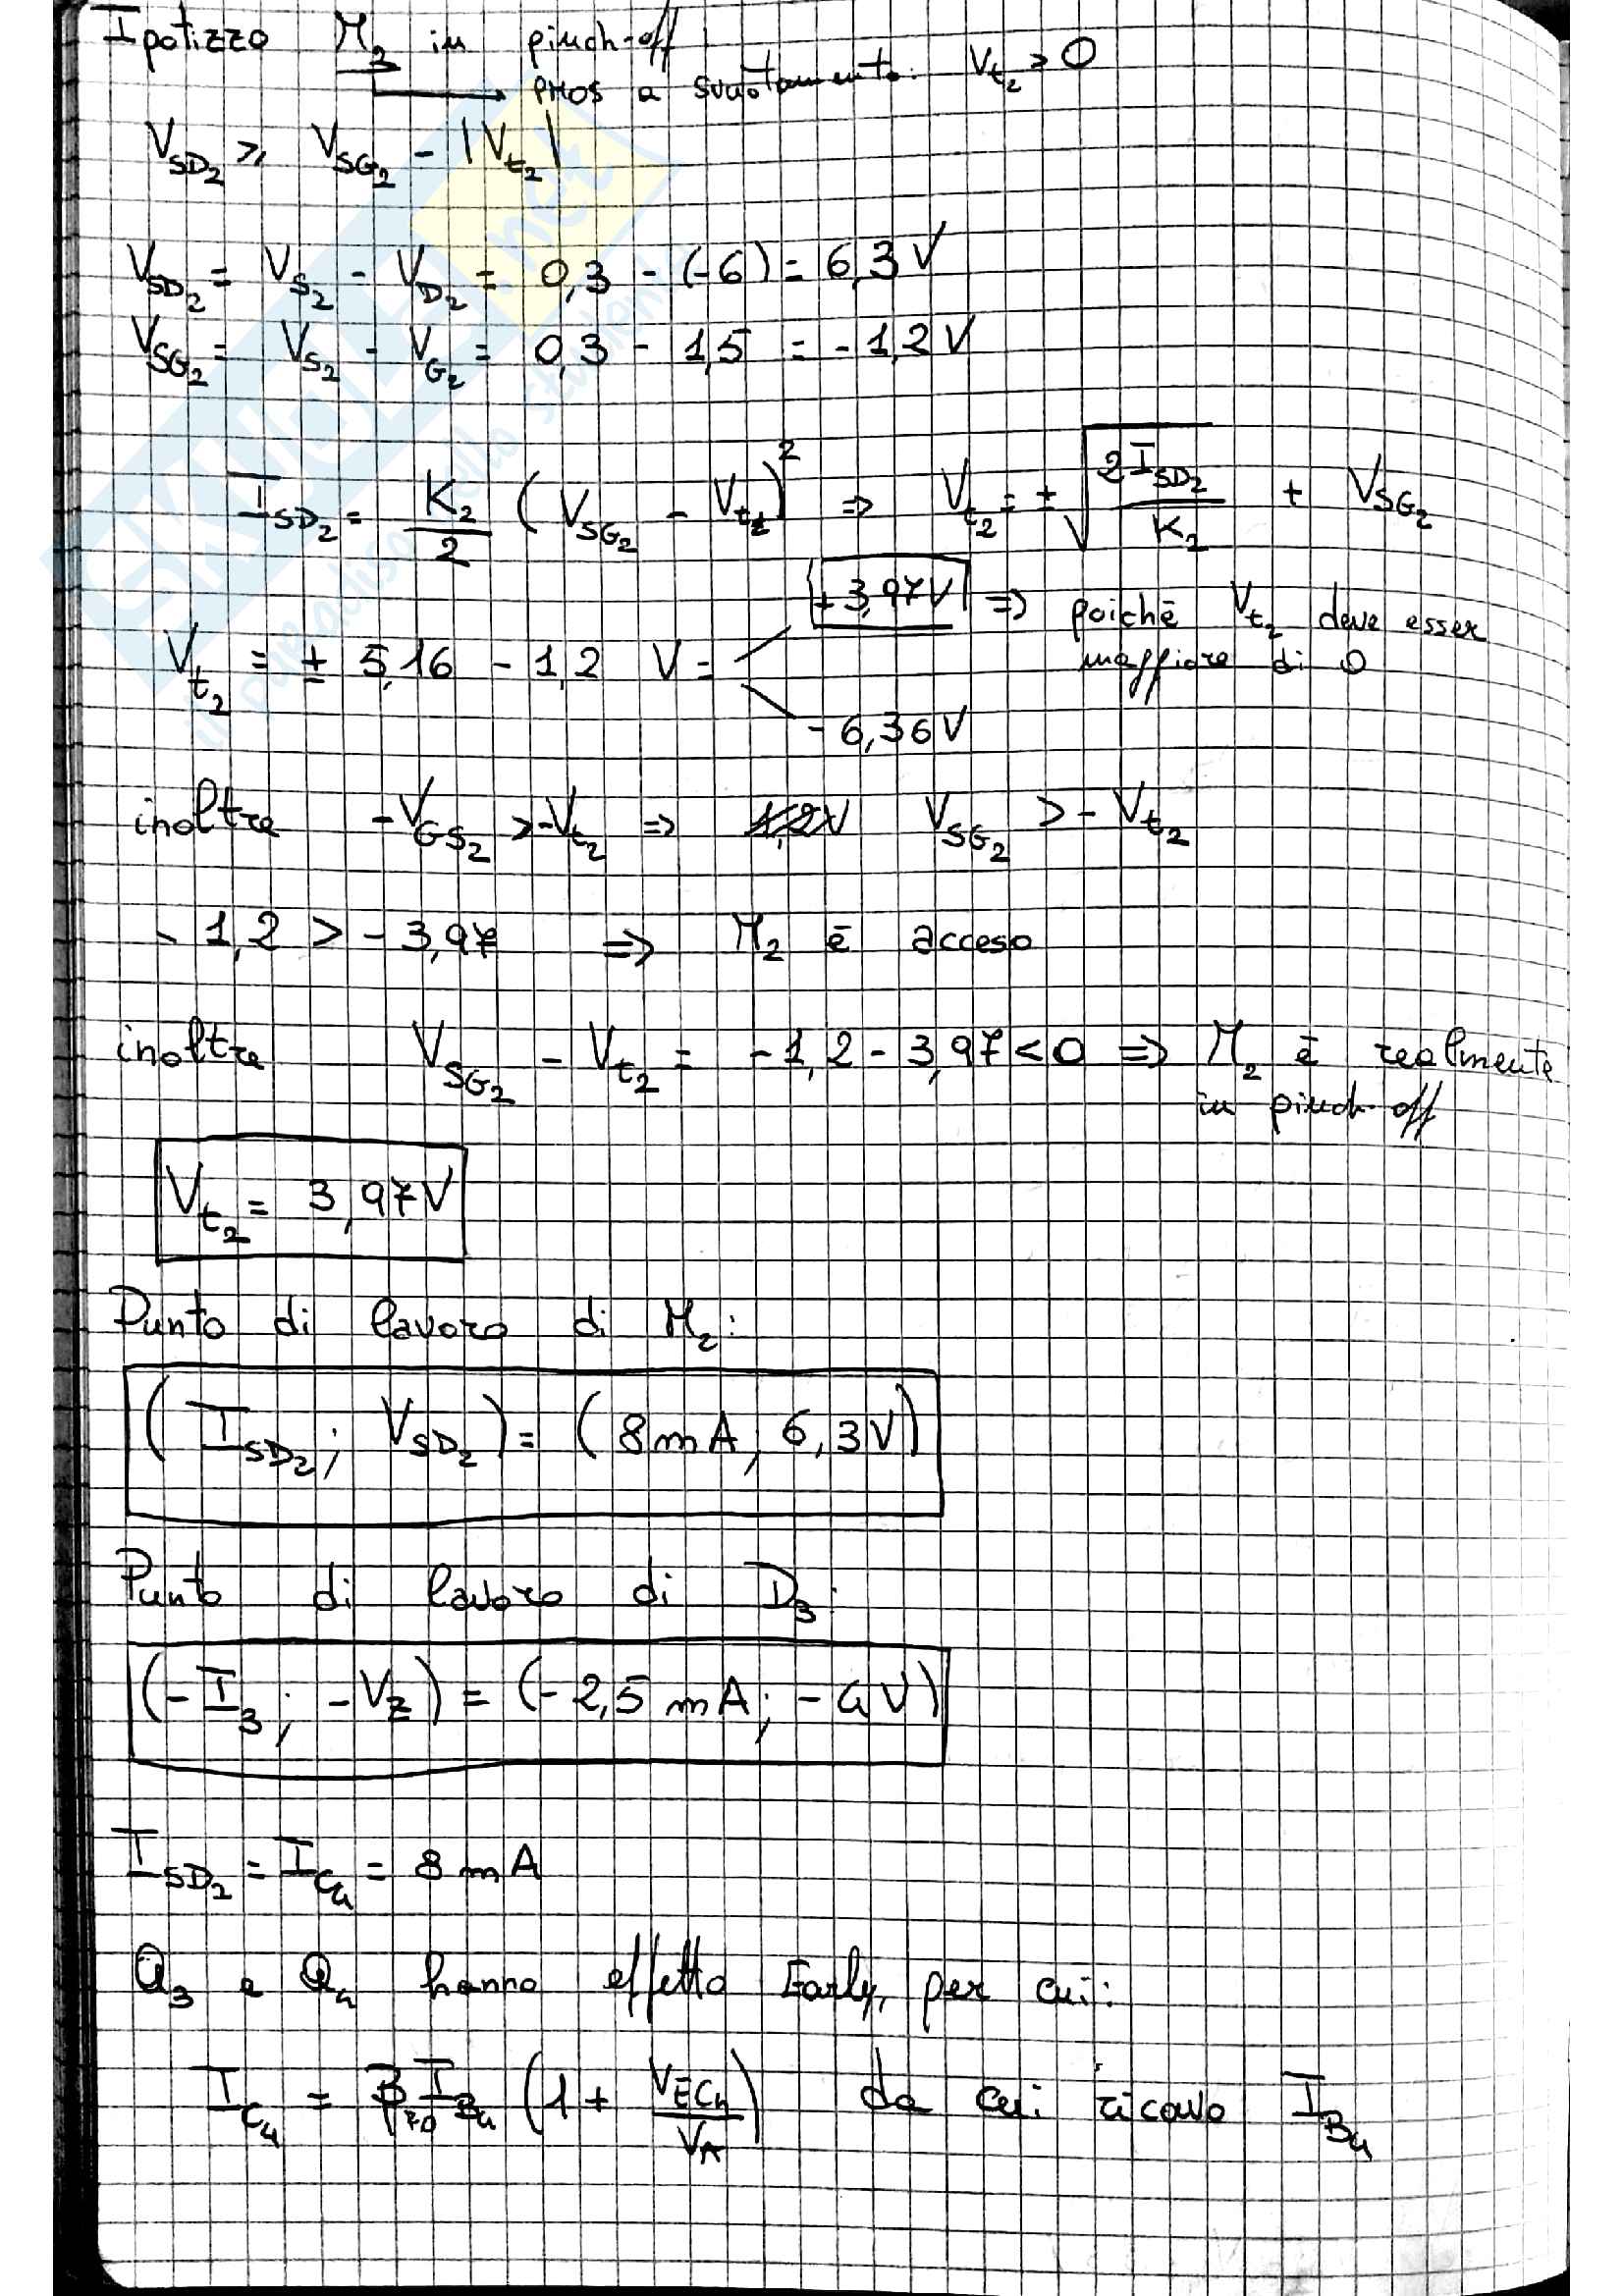 Ipotizzo M₂ in pinch-off
PMOS a svuotamento. V_t₂ > 0
V_SD₂ ≥ V_SG₂ - |V_t₂|
V_SD₂ = V_S₂ - V_D₂ = 0,3 - (-6) = 6,3 V
V_SG₂ = V_S₂ - V_G₂ = 0,3 - 1,5 = -1,2 V
I_SD₂ = K₂/2 (V_SG₂ - V_t₂)² ⇒ V_t₂ = ± √(2 I_SD₂/K₂) + V_SG₂
V_t₂ = ± 5,16 - 1,2 V = + 3,97 V ⇒ poichè V_t₂ deve esser maggiore di 0
- 6,36 V
inoltre -V_GS₂ > -V_t₂ ⇒ V_SG₂ > - V_t₂
- 1,2 > - 3,97 ⇒ M₂ è acceso
inoltre V_SG₂ - V_t₂ = -1,2 - 3,97 < 0 ⇒ M₂ è realmente
in pinch-off
V_t₂ = 3,97 V
Punto di lavoro di M₂:
(I_SD₂; V_SD₂) = (8 mA, 6,3 V)
Punto di lavoro di D₃:
(-I₃; -V_Z) = (-2,5 mA; -4 V)
I_SD₂ = I_C₄ = 8 mA
Q₃ e Q₄ hanno effetto Early, per cui:
I_C₄ = β_F0 I_B₄ (1 + V_EC₄/V_A) da cui ricavo I_B₄